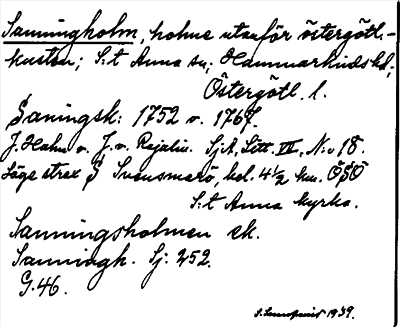 Sanningholm, holme utanför östergötl.-
kusten; S:t Anna sn; Hammarkinds hd;
Östergötl. l.
Saningsk: 1752 v. 1767.
J. Hahn v. J. v. Rajalin. SjA, Litt. VII, N:o 18.
Läge strax S Svensmarö, bel. 4½ km. ÖSÖ
S:t Anna kyrka.
Sanningsholmen ek.
Sanningh. Sj: 252.
G.46.
1939.